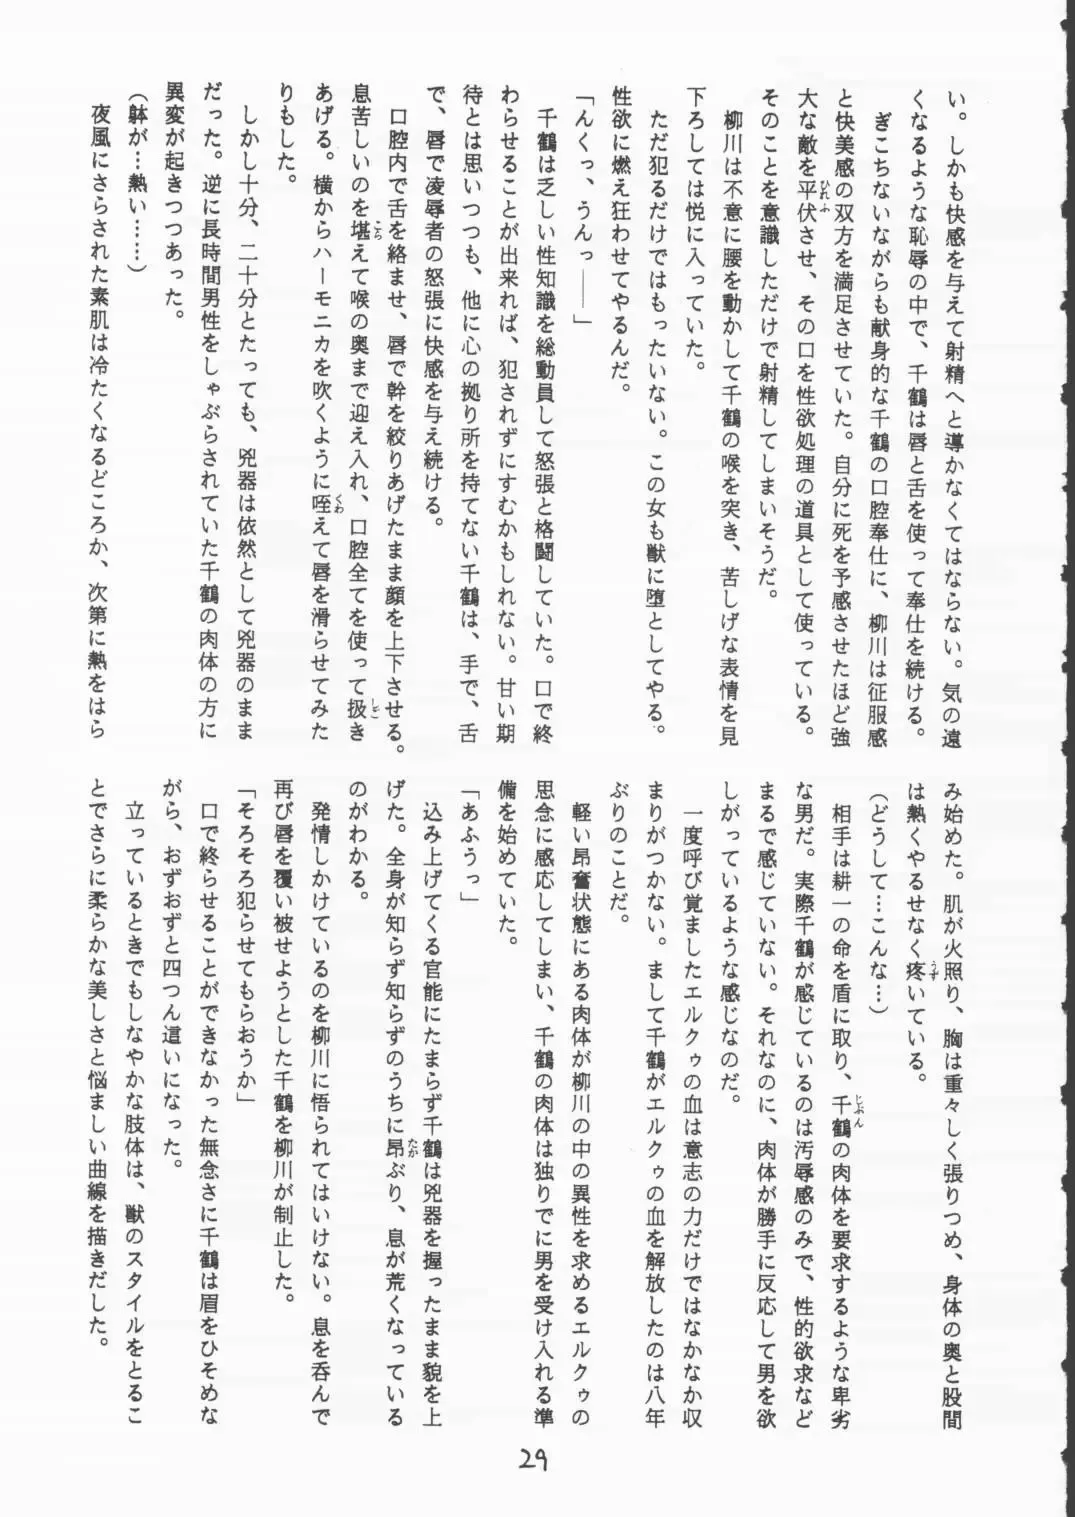 い。しかも快感を与えて射精へと導かなくてはならない。気の遠
くなるような恥辱の中で、千鶴は唇と舌を使って奉仕を続ける。
ぎこちないながらも献身的な千鶴の口腔奉仕に、柳川は征服感
と快美感の双方を満足させていた。自分に死を予感させたほど強
大な敵を平伏させ、その口を性欲処理の道具として使っている。
そのことを意識しただけで射精してしまいそうだ。
柳川は不意に腰を動かして千鶴の喉を突き、苦しげな表情を見
下ろしては悦に入っていた。
ただ犯るだけではもったいない。この女も獣に堕としてやる。
性欲に燃え狂わせてやるんだ。
「んくっ、うんっ――」
千鶴は乏しい性知識を総動員して怒張と格闘していた。口で終
わらせることが出来れば、犯されずにすむかもしれない。甘い期
待とは思いつつも、他に心の拠り所を持てない千鶴は、手で、舌
で、唇で凌辱者の怒張に快感を与え続ける。
口腔内で舌を絡ませ、唇で幹を絞りあげたまま顔を上下させる。
息苦しいのを堪えて喉の奥まで迎え入れ、口腔全てを使って扱き
あげる。横からハーモニカを吹くように咥えて唇を滑らせてみた
りもした。
しかし十分、二十分とたっても、兇器は依然として兇器のまま
だった。逆に長時間男性をしゃぶらされていた千鶴の肉体の方に
異変が起きつつあった。
（躰が…熱い……）
夜風にさらされた素肌は冷たくなるどころか、次第に熱をはら
み始めた。肌が火照り、胸は重々しく張りつめ、身体の奥と股間
は熱くやるせなく疼いている。
（どうして…こんな…）
相手は耕一の命を盾に取り、千鶴の肉体を要求するような卑劣
な男だ。実際千鶴が感じているのは汚辱感のみで、性的欲求など
まるで感じていない。それなのに、肉体が勝手に反応して男を欲
しがっているような感じなのだ。
一度呼び覚ましたエルクゥの血は意志の力だけではなかなか収
まりがつかない。まして千鶴がエルクゥの血を解放したのは八年
ぶりのことだ。
軽い昂奮状態にある肉体が柳川の中の異性を求めるエルクゥの
思念に感応してしまい、千鶴の肉体は独りでに男を受け入れる準
備を始めていた。
「あふうっ」
込み上げてくる官能にたまらず千鶴は兇器を握ったまま貌を上
げた。全身が知らず知らずのうちに昂ぶり、息が荒くなっている
のがわかる。
発情しかけているのを柳川に悟られてはいけない。息を呑んで
再び唇を覆い被せようとした千鶴を柳川が制止した。
「そろそろ犯らせてもらおうか」
口で終らせることができなかった無念さに千鶴は眉をひそめな
がら、おずおずと四つん這いになった。
立っているときでもしなやかな肢体は、獣のスタイルをとるこ
とでさらに柔らかな美しさと悩ましい曲線を描きだした。
29